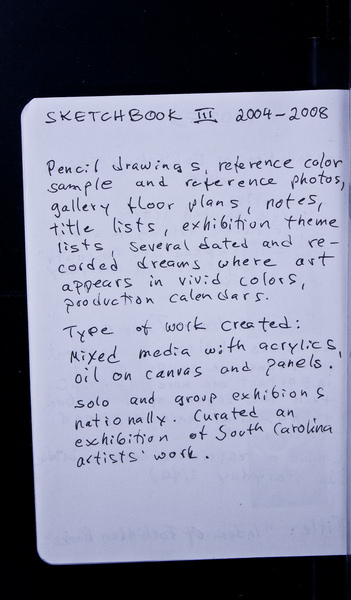 SKETCHBOOK III 2004-2008
Pencil drawings, reference color
sample and reference photos,
gallery floor plans, notes,
title lists, exhibition theme
lists, several dated and re-
corded dreams where art
appears in vivid colors,
production calendars.
Type of work created:
Mixed media with acrylics,
oil on canvas and panels.
solo and group exhibions
nationally. Curated an
exhibition of South Carolina
artists' work.